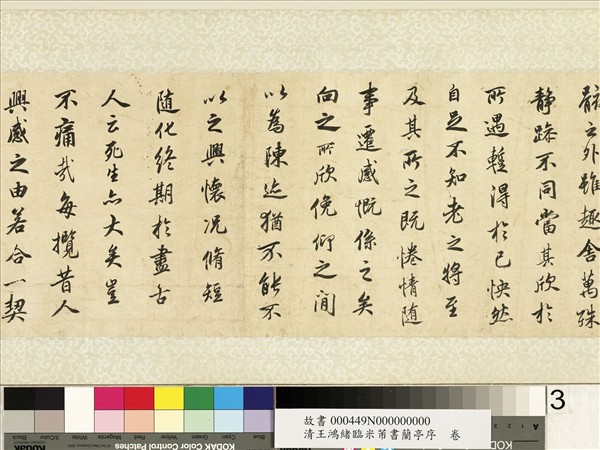 骸之外雖趣舍萬殊
静躁不同當其欣於
所遇輙得於己怏然
自足不知老之將至
及其所之既惓情随
事遷感慨係之矣
向之所欣俛仰之間
以為陳迹猶不能不
以之興懷况脩短
随化終期於盡古
人云死生亦大矣豈
不痛哉每攬昔人
興感之由若合一契
3
故書 000449N000000000
清王鴻緒臨米芾書蘭亭序 卷
Blue Cyan Green Yellow Red Magenta White 3/Color Black
KODAK Color Control Patches
KODAK